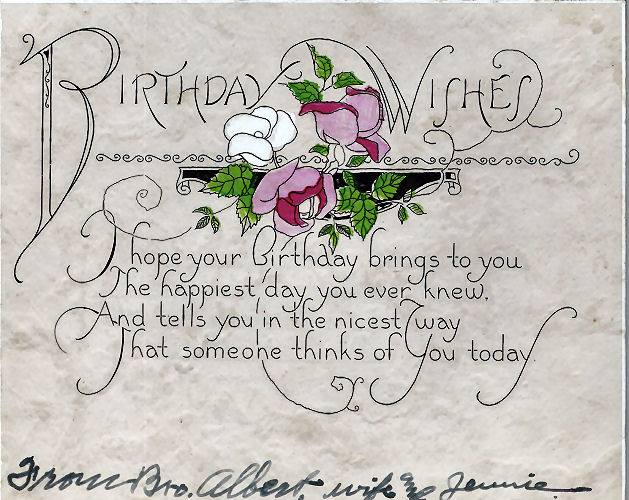 Birthday Wishes
I hope your Birthday brings to you
The happiest day you ever knew,
And tells you in the nicest way
That someone thinks of You today.
From Bro. Albert, wife Jennie